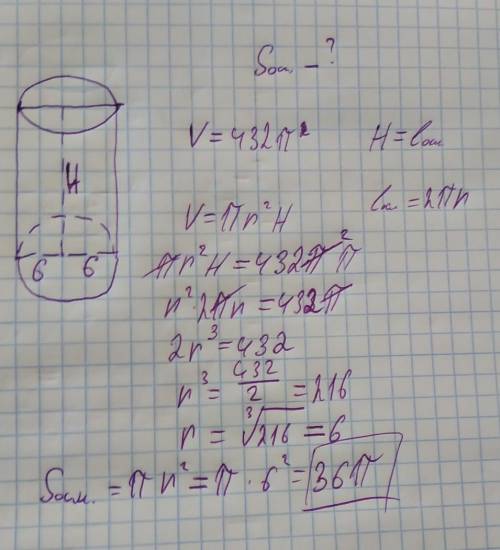 Sосн. – ?
V = 432π² H = lосн
V = πr²H lк = 2πr
H
πr²H = 432π² π
6 6
r² · 2πr = 432π
2r³ = 432
r³ = 432/2 = 216
r = ∛216 = 6
Sосн. = πr² = π · 6² = 36π